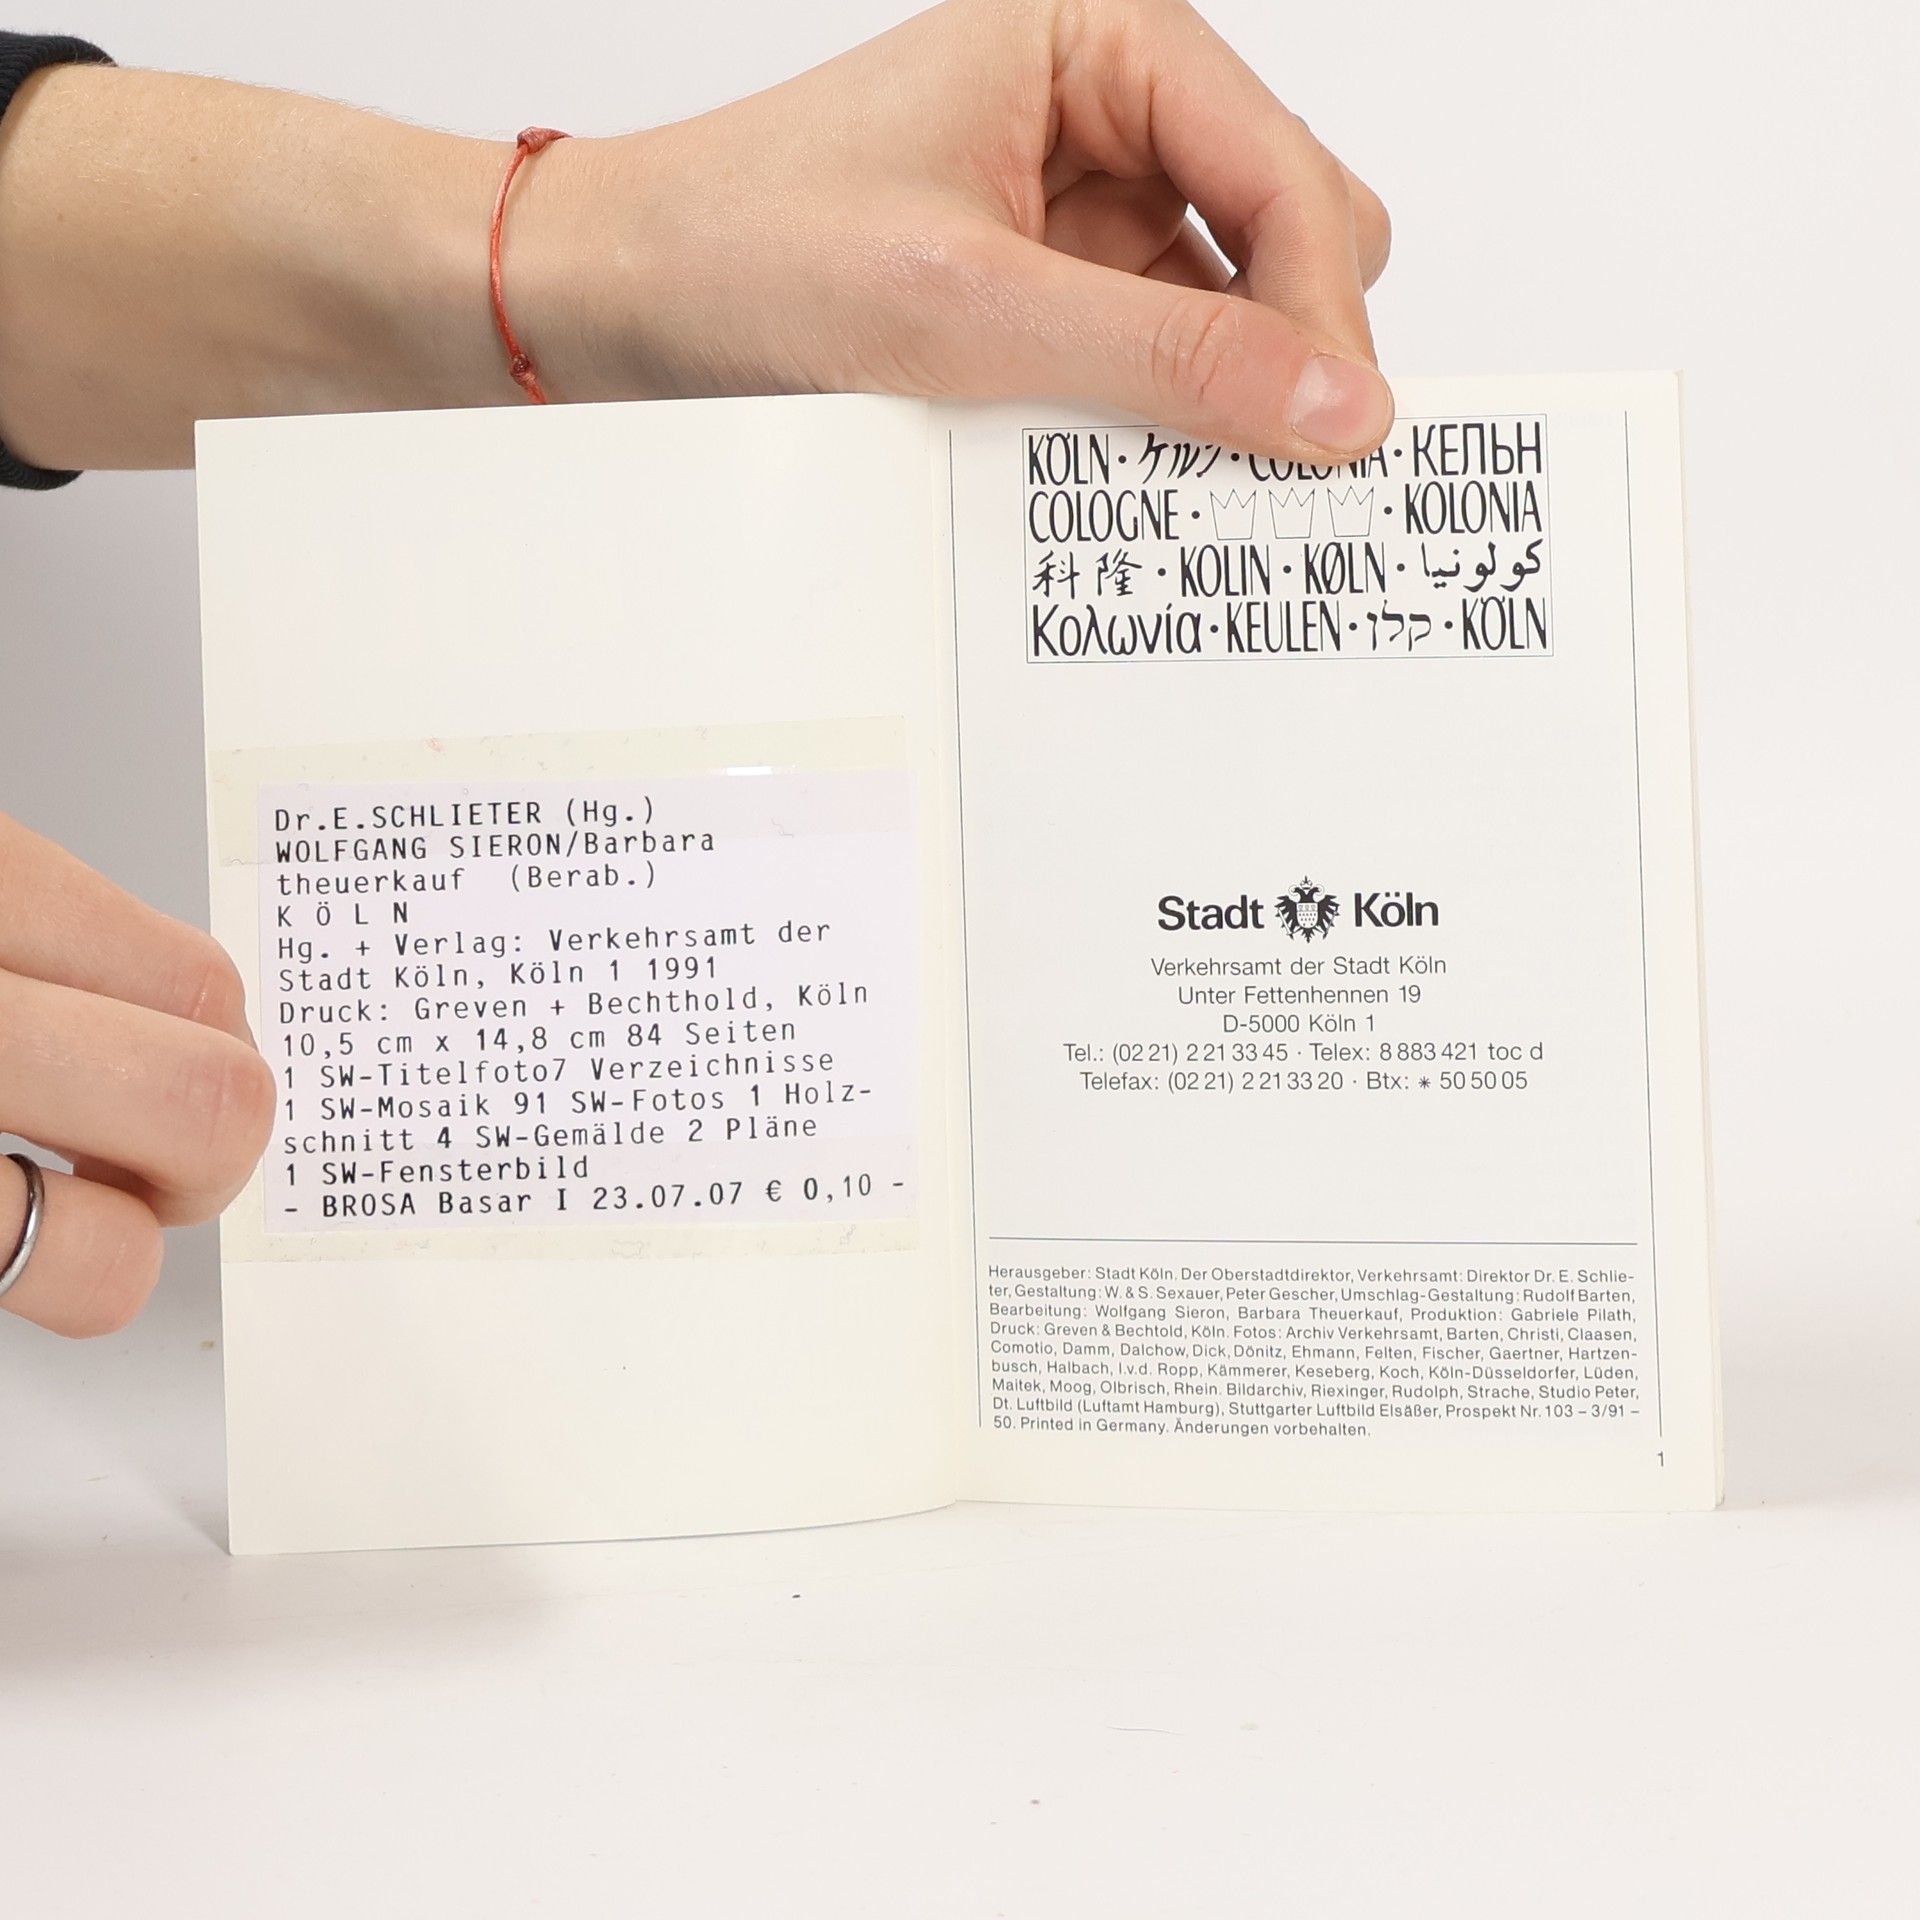 Dr.E.SCHLIETER (Hg.)
WOLFGANG SIERON/Barbara
theuerkauf (Berab.)
K Ö L N
Hg. + Verlag: Verkehrsamt der
Stadt Köln, Köln 1 1991
Druck: Greven + Bechthold, Köln
10,5 cm x 14,8 cm 84 Seiten
1 SW-Titelfoto7 Verzeichnisse
1 SW-Mosaik 91 SW-Fotos 1 Holz-
schnitt 4 SW-Gemälde 2 Pläne
1 SW-Fensterbild
- BROSA Basar I 23.07.07 € 0,10 -
KÖLN · ケルン · COLONIA · КЕПЬН
COLOGNE · · KOLONIA
科隆 · KOLIN · KØLN · كولونيا
Κολωνία · KEULEN · קלן · KÖLN
Stadt Köln
Verkehrsamt der Stadt Köln
Unter Fettenhennen 19
D-5000 Köln 1
Tel.: (02 21) 2 21 33 45 · Telex: 8 883 421 toc d
Telefax: (02 21) 2 21 33 20 · Btx: ✳ 50 50 05
Herausgeber: Stadt Köln. Der Oberstadtdirektor, Verkehrsamt: Direktor Dr. E. Schlie-
ter, Gestaltung: W. & S. Sexauer, Peter Gescher, Umschlag-Gestaltung: Rudolf Barten,
Bearbeitung: Wolfgang Sieron, Barbara Theuerkauf, Produktion: Gabriele Pilath,
Druck: Greven & Bechtold, Köln. Fotos: Archiv Verkehrsamt, Barten, Christi, Claasen,
Comotio, Damm, Dalchow, Dick, Dönitz, Ehmann, Felten, Fischer, Gaertner, Hartzen-
busch, Halbach, I.v.d. Ropp, Kämmerer, Keseberg, Koch, Köln-Düsseldorfer, Lüden,
Maitek, Moog, Olbrisch, Rhein. Bildarchiv, Riexinger, Rudolph, Strache, Studio Peter,
Dt. Luftbild (Luftamt Hamburg), Stuttgarter Luftbild Elsäßer, Prospekt Nr. 103 – 3/91 –
50. Printed in Germany. Änderungen vorbehalten.
1